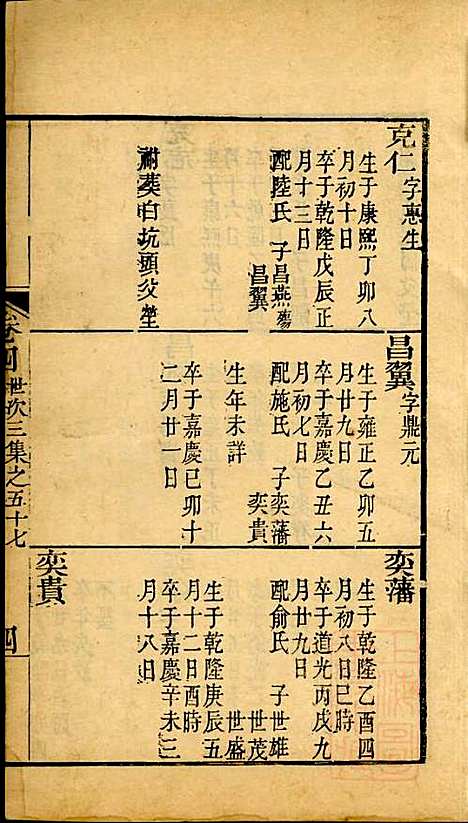 克仁字惠生
生于康熙丁卯八
月初十日
卒于乾隆戊辰正
月十三日
配陸氏 子昌燕殤
昌翼
祔葬白坑頭父塋
昌翼字鼎元
生于雍正乙卯五
月廿九日
卒于嘉慶乙丑六
月初七日
配施氏 子奕藩
奕貴
生年未詳
卒于嘉慶己卯十
二月廿一日
奕藩
生于乾隆乙酉四
月初八日巳時
卒于道光丙戌九
月廿九日
配俞氏 子世雄
世茂
世盛
生于乾隆庚辰五
月十二日酉時
卒于嘉慶辛未三
月十八日
奕貴
卷四 世次三集之五十七
四